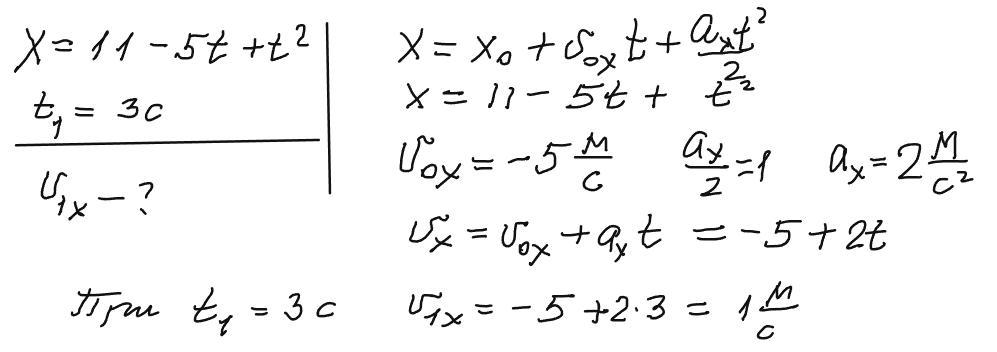 x = 11 - 5t + t²
t₁ = 3c
υ₁ₓ - ?
x = x₀ + υ₀ₓt + aₓt²/2
x = 11 - 5t + t²
υ₀ₓ = -5 м/с   aₓ/2 = 1   aₓ = 2 м/с²
υₓ = υ₀ₓ + aₓt = -5 + 2t
При t₁ = 3 c   υ₁ₓ = -5 + 2·3 = 1 м/с